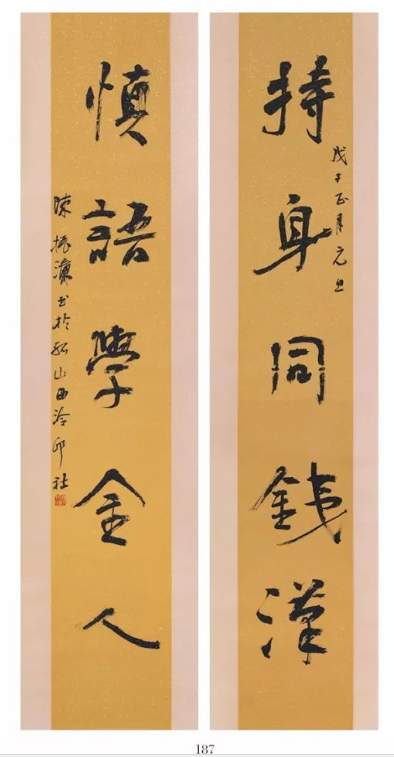 戊子正月元旦
持身同銕漢
慎語學金人
陳振濂书於孤山西泠印社
187